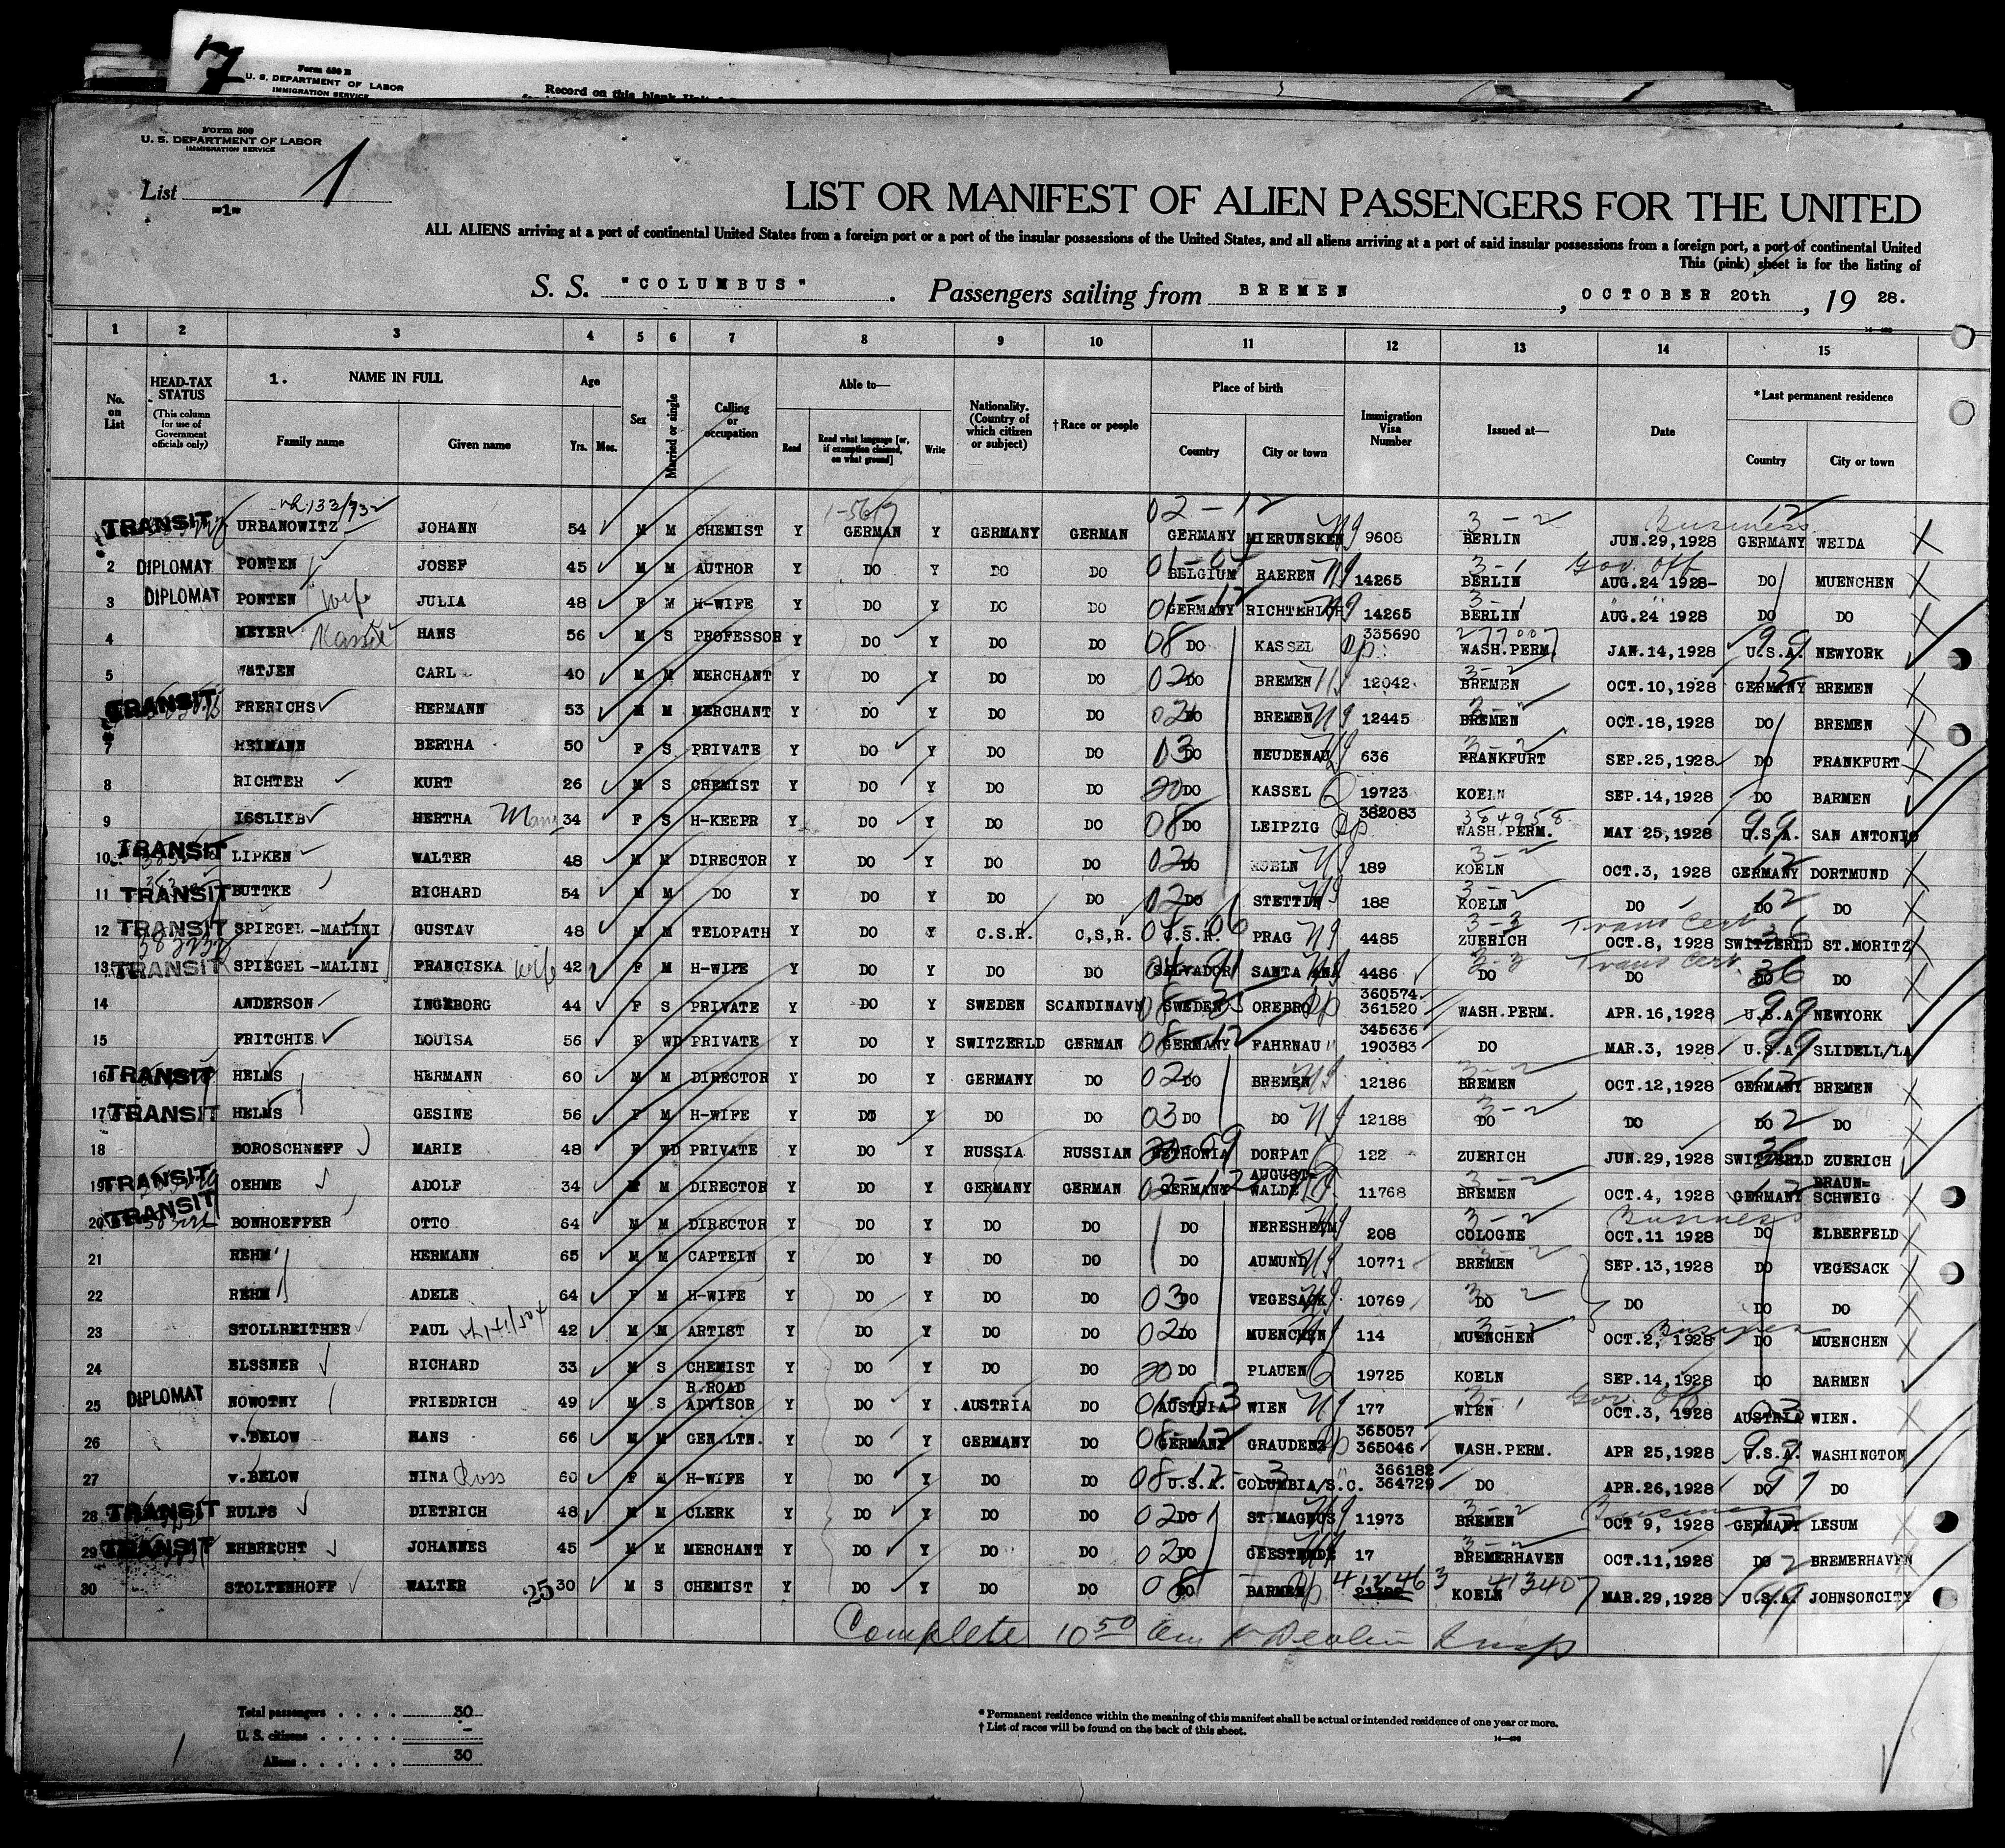 7
Form 630 B
U. S. DEPARTMENT OF LABOR
IMMIGRATION SERVICE
Record on this blank
Form 500
U. S. DEPARTMENT OF LABOR
IMMIGRATION SERVICE
List 1
-1-
LIST OR MANIFEST OF ALIEN PASSENGERS FOR THE UNITED
ALL ALIENS arriving at a port of continental United States from a foreign port or a port of the insular possessions of the United States, and all aliens arriving at a port of said insular possessions from a foreign port, a port of continental United
This (pink) sheet is for the listing of
S. S. "COLUMBUS". Passengers sailing from BREMEN, OCTOBER 20th, 19 28.
1 2 3 4 5 6 7 8 9 10 11 12 13 14 15
No. on List
HEAD-TAX STATUS
(This column for use of Government officials only)
1. NAME IN FULL
Family name Given name
Age
Yrs. Mos.
Sex
Married or single
Calling or occupation
Able to—
Read
Read what language [or, if exemption claimed, on what ground]
Write
Nationality. (Country of which citizen or subject)
†Race or people
Place of birth
Country City or town
Immigration Visa Number
Issued at—
Date
*Last permanent residence
Country City or town
TRANSIT URBANOWITZ JOHANN 54 M M CHEMIST Y GERMAN Y GERMANY GERMAN 02-12 GERMANY MIERUNSKEN 9608 3-2 BERLIN Business JUN.29,1928 12 GERMANY WEIDA
2 DIPLOMAT PONTEN JOSEF 45 M M AUTHOR Y DO Y DO DO BELGIUM RAEREN 14265 3-1 BERLIN Gov. Off AUG.24 1928- DO MUENCHEN
3 DIPLOMAT PONTEN wife JULIA 48 F M H-WIFE Y DO Y DO DO 01-12 GERMANY RICHTERICH 14265 3-1 BERLIN AUG.24 1928 DO DO
4 MEYER HANS 56 M S PROFESSOR Y DO Y DO DO 08 DO KASSEL 335690 277007 WASH.PERM. JAN.14,1928 99 U.S.A. NEWYORK
5 WATJEN CARL 40 M M MERCHANT Y DO Y DO DO 02 DO BREMEN 12042 3-2 BREMEN OCT.10,1928 12 GERMANY BREMEN
TRANSIT FRERICHS HERMANN 53 M M MERCHANT Y DO Y DO DO 02 DO BREMEN 12445 BREMEN OCT.18,1928 DO BREMEN
7 HEIMANN BERTHA 50 F S PRIVATE Y DO Y DO DO 03 DO NEUDENAU 636 3-2 FRANKFURT SEP.25,1928 DO FRANKFURT
8 RICHTER KURT 26 M S CHEMIST Y DO Y DO DO 20 DO KASSEL 19723 KOELN SEP.14,1928 DO BARMEN
9 ISSLIEB HERTHA 34 F S H-KEEPR Y DO Y DO DO 08 DO LEIPZIG 382083 384958 WASH.PERM. MAY 25,1928 99 U.S.A. SAN ANTONIO
10 TRANSIT LIPKEN WALTER 48 M M DIRECTOR Y DO Y DO DO 02 DO KOELN 189 3-2 KOELN OCT.3, 1928 12 GERMANY DORTMUND
11 TRANSIT BUTTKE RICHARD 54 M M DO Y DO Y DO DO 02 DO STETTIN 188 3-2 KOELN DO DO DO
12 TRANSIT SPIEGEL-MALINI GUSTAV 48 M M TELOPATH Y DO Y C.S.R. C,S,R. C.S.R. PRAG 4485 3-3 ZUERICH Trans Cert OCT.8, 1928 SWITZERLD ST.MORITZ
13 TRANSIT SPIEGEL-MALINI FRANCISKA wife 42 F M H-WIFE Y DO Y DO DO SALVADOR SANTA ANA 4486 3-3 DO Trans Cert. DO 36 DO DO
14 ANDERSON INGEBORG 44 F S PRIVATE Y DO Y SWEDEN SCANDINAVN SWEDEN OREBRO 360574 361520 WASH.PERM. APR.16,1928 99 U.S.A. NEWYORK
15 FRITCHIE LOUISA 56 F WD PRIVATE Y DO Y SWITZERLD GERMAN 08-12 GERMANY FAHRNAU 345636 190383 DO MAR.3, 1928 99 U.S.A. SLIDELL/LA
16 TRANSIT HELMS HERMANN 60 M M DIRECTOR Y DO Y GERMANY DO 02 DO BREMEN 12186 3-2 BREMEN OCT.12,1928 12 GERMANY BREMEN
17 TRANSIT HELMS GESINE 56 F M H-WIFE Y DO Y DO DO 03 DO DO 12188 3-2 DO DO DO DO
18 BOROSCHNEFF MARIE 48 F WD PRIVATE Y DO Y RUSSIA RUSSIAN ESTHONIA DORPAT 122 ZUERICH JUN.29,1928 36 SWITZERLD ZUERICH
19 TRANSIT OEHME ADOLF 34 M M DIRECTOR Y DO Y GERMANY GERMAN 02-12 GERMANY AUGUST-WALDE 11768 3-2 BREMEN OCT.4, 1928 12 GERMANY BRAUN=SCHWEIG
20 TRANSIT BONHOEFFER OTTO 64 M M DIRECTOR Y DO Y DO DO DO NERESHEIM 208 3-2 COLOGNE Business OCT.11 1928 DO ELBERFELD
21 REHM HERMANN 65 M M CAPTEIN Y DO Y DO DO DO AUMUND 10771 3-2 BREMEN SEP.13,1928 DO VEGESACK
22 REHM ADELE 64 F M H-WIFE Y DO Y DO DO 03 DO VEGESACK 10769 3-2 DO DO DO DO
23 STOLLREITHER PAUL 42 M M ARTIST Y DO Y DO DO 02 DO MUENCHEN 114 3-2 MUENCHEN Business OCT.2, 1928 DO MUENCHEN
24 ELSSNER RICHARD 33 M S CHEMIST Y DO Y DO DO 20 DO PLAUEN 19725 KOELN SEP.14,1928 DO BARMEN
25 DIPLOMAT NOWOTNY FRIEDRICH 49 M S R.ROAD ADVISOR Y DO Y AUSTRIA DO 01-03 AUSTRIA WIEN 177 3-1 WIEN Gov. Off. OCT.3, 1928 03 AUSTRIA WIEN.
26 v.BELOW HANS 66 M M GEN.LTN. Y DO Y GERMANY DO 08-12 GERMANY GRAUDENZ 365057 365046 WASH.PERM. APR 25,1928 99 U.S.A. WASHINGTON
27 v.BELOW NINA 60 F M H-WIFE Y DO Y DO DO U.S.A. COLUMBIA/S.C. 366182 364729 DO APR.26,1928 DO DO
28 TRANSIT RULFS DIETRICH 48 M M CLERK Y DO Y DO DO 02 DO ST.MAGNUS 11973 3-2 BREMEN Business OCT 9, 1928 12 GERMANY LESUM
29 TRANSIT EHBRECHT JOHANNES 45 M M MERCHANT Y DO Y DO DO 02 DO GEESTEMDE 17 3-2 BREMERHAVEN OCT.11,1928 DO BREMERHAVEN
30 STOLTENHOFF WALTER 25 30 M S CHEMIST Y DO Y DO DO 08 DO BARMEN 412463 KOELN 413407 MAR.29,1928 99 U.S.A. JOHNSONCITY
Complete 10 50 am Devlin Insp
Total passengers . . . . 30
U. S. citizens . . . . . -
Aliens . . . . . . 30
* Permanent residence within the meaning of this manifest shall be actual or intended residence of one year or more.
† List of races will be found on the back of this sheet.